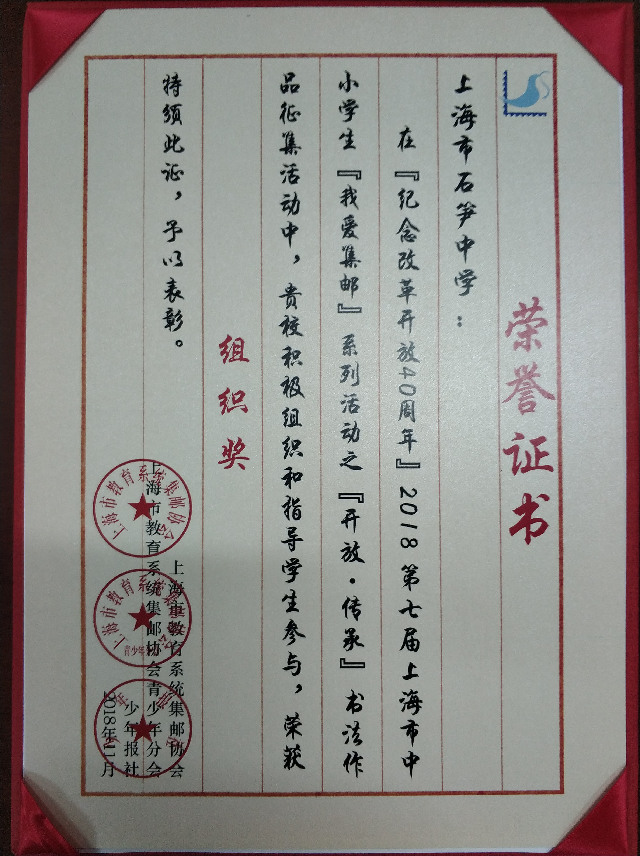 荣誉证书
上海市石笋中学：
在『纪念改革开放40周年』2018第七届上海市中
小学生『我爱集邮』系列活动之『开放·传承』书法作
品征集活动中，贵校积极组织和指导学生参与，荣获
组织奖
特须此证，予以表彰。
上海市教育系统集邮协会
上海市教育系统集邮协会青少年分会
少年报社
2018年11月
上海市教育系统集邮协会
上海市教育系统
青少年